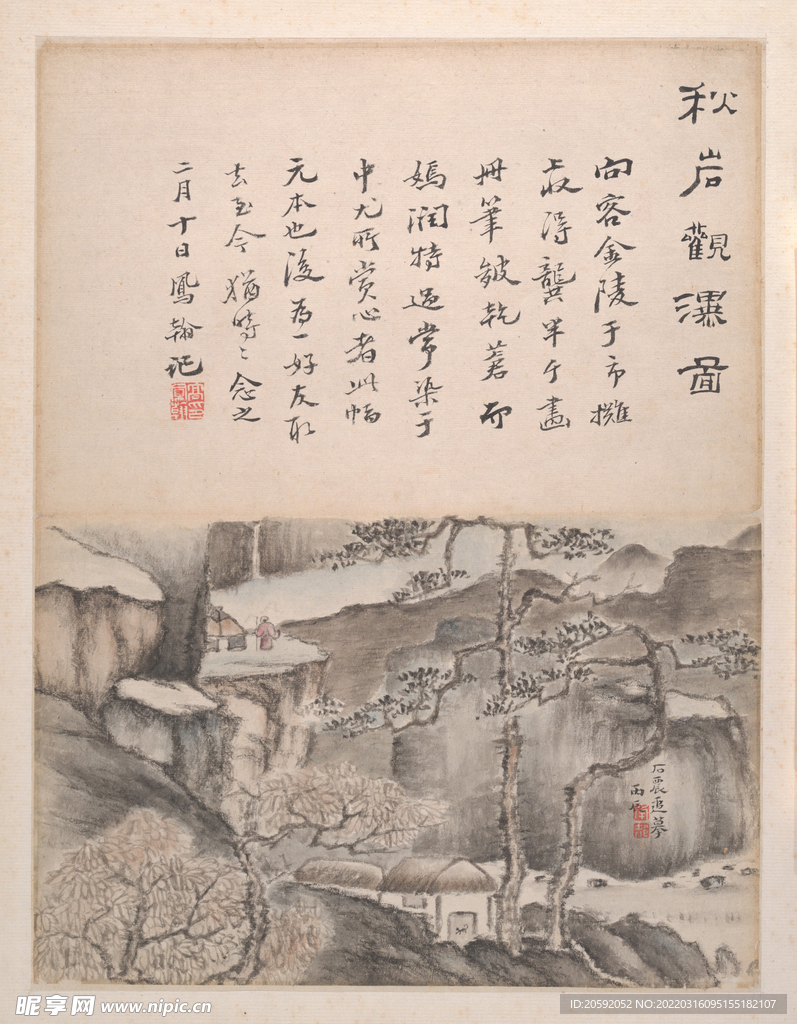 秋岩觀瀑圖
向客金陵于市攤
收得龔半千畫
冊筆皴乾蒼而
嫣潤特過常染于
中尤所賞心者此幅
元本也後為一好友取
去至今猶時〻念之
二月十日鳳翰記
追摹
丙辰
昵享网 www.nipic.cn
ID:20592052 NO:20220316095155182107